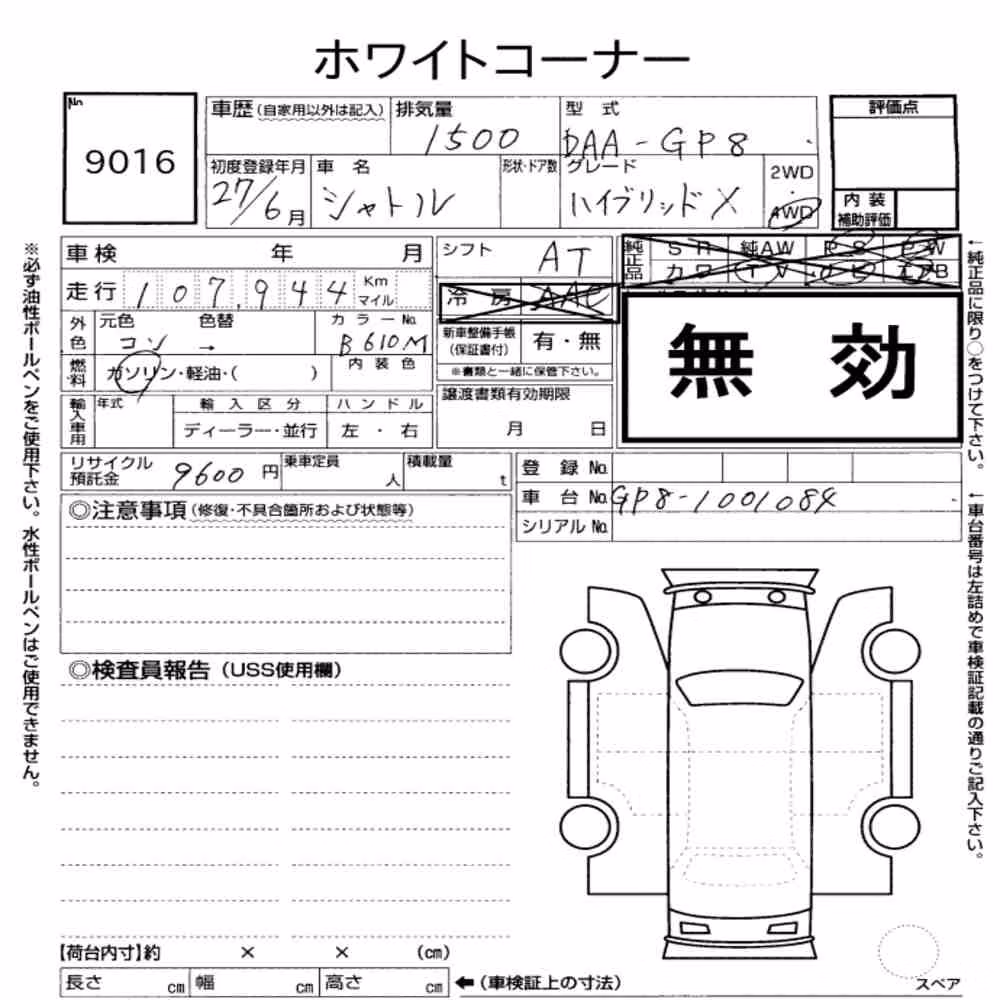 ホワイトコーナー
No.
9016
車歴(自家用以外は記入) 排気量 1500 型式 DAA-GP8
初度登録年月 27/6月 車名 シャトル 形状・ドア数 グレード ハイブリッドX 2WD・AWD
評価点
内装
補助評価
車検 年 月
シフト AT
純正品 SR 純AW PS PW
カワ TV ナビ エアB
走行 107,944 Km マイル
冷房 AAC
無効
外色 元色 コン → 色替 カラーNo. B610M
新車整備手帳
(保証書付) 有・無
※書類と一緒に保管下さい。
燃料 ガソリン・軽油・( ) 内装色
譲渡書類有効期限
月 日
輸入車用 年式 輸入区分 ハンドル
ディーラー・並行 左・右
リサイクル預託金 9600円 乗車定員 人 積載量 t
登録No.
車台No. GP8-1001084
シリアルNo.
◎注意事項(修復・不具合箇所および状態等)
◎検査員報告(USS使用欄)
【荷台内寸】約 × × (cm)
長さ cm 幅 cm 高さ cm ←(車検証上の寸法)
スペア
※必ず油性ボールペンをご使用下さい。水性ボールペンはご使用できません。
←純正品に限り○をつけて下さい。
←車台番号は左詰めで車検証記載の通りご記入下さい。